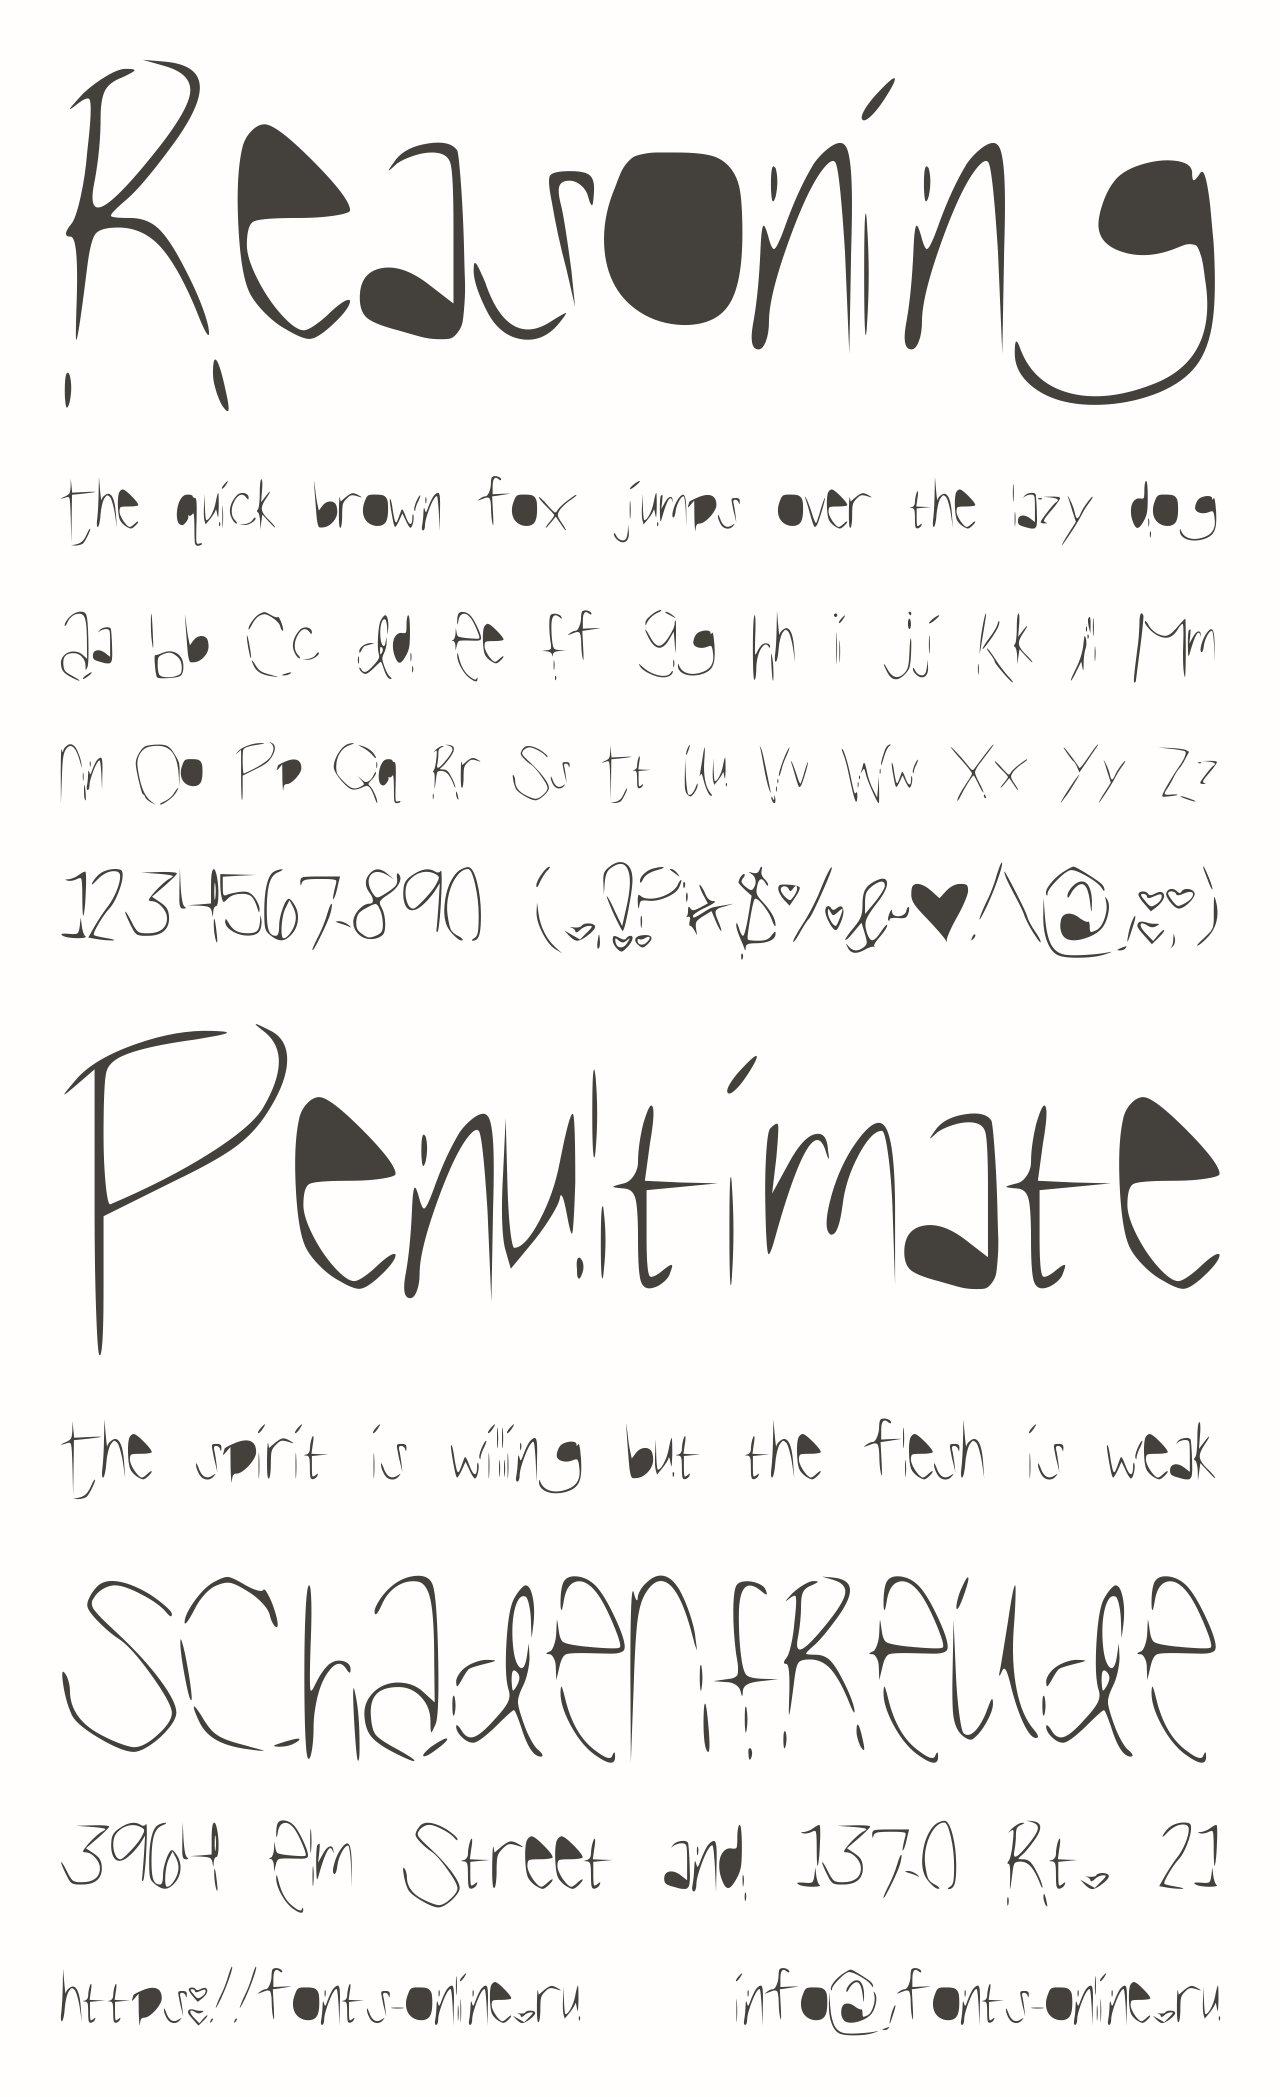 Reasoning
the quick brown fox jumps over the lazy dog
Aa Bb Cc Dd Ee Ff Gg Hh Ii Jj Kk Ll Mm
Nn Oo Pp Qq Rr Ss Tt Uu Vv Ww Xx Yy Zz
1234567890 (.,!?#$%&~♥/\@,:;)
Penultimate
the spirit is willing but the flesh is weak
SCHADENFREUDE
3964 Elm Street and 1370 Rt. 21
https://fonts-online.ru info@fonts-online.ru